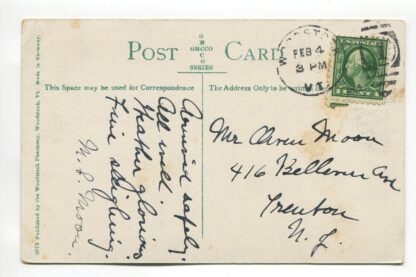 POST CARD
G
M
GMCCO
C
O
SERIES
This Space may be used for Correspondence
The Address Only to be
WOODSTOCK
FEB 4
3 PM
VT.
U.S. POSTAGE
Arrived safely.
All well.
Weather glorious
Fine sleighing.
M. L. Moon.
Mr Owen Moon
416 Bellevue Ave
Trenton
N. J.
Published by the Woodstock Pharmacy, Woodstock, Vt. Made in Germany.